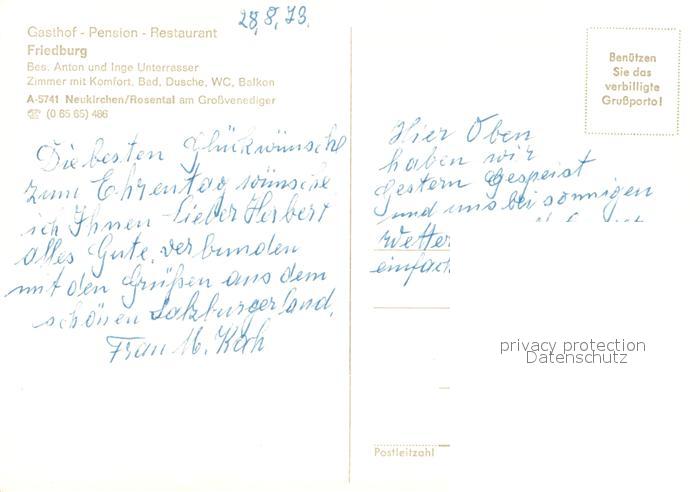 28.8.73.
Gasthof - Pension - Restaurant
Friedburg
Bes. Anton und Inge Unterrasser
Zimmer mit Komfort, Bad, Dusche, WC, Balkon
A-5741 Neukirchen/Rosental am Großvenediger
☎ (0 65 65) 486
Die besten Glückwünsche
zum Ehrentag wünsche
ich Ihnen - Lieber Herbert
alles Gute, verbunden
mit den Grüßen aus dem
schönen Salzburgerland,
Frau M. Koch
Benützen
Sie das
verbilligte
Grußporto!
Hier Oben
haben wir
Gestern Gespeist
und uns bei sonnigen
Wetter
einfach
privacy protection
Datenschutz
Postleitzahl